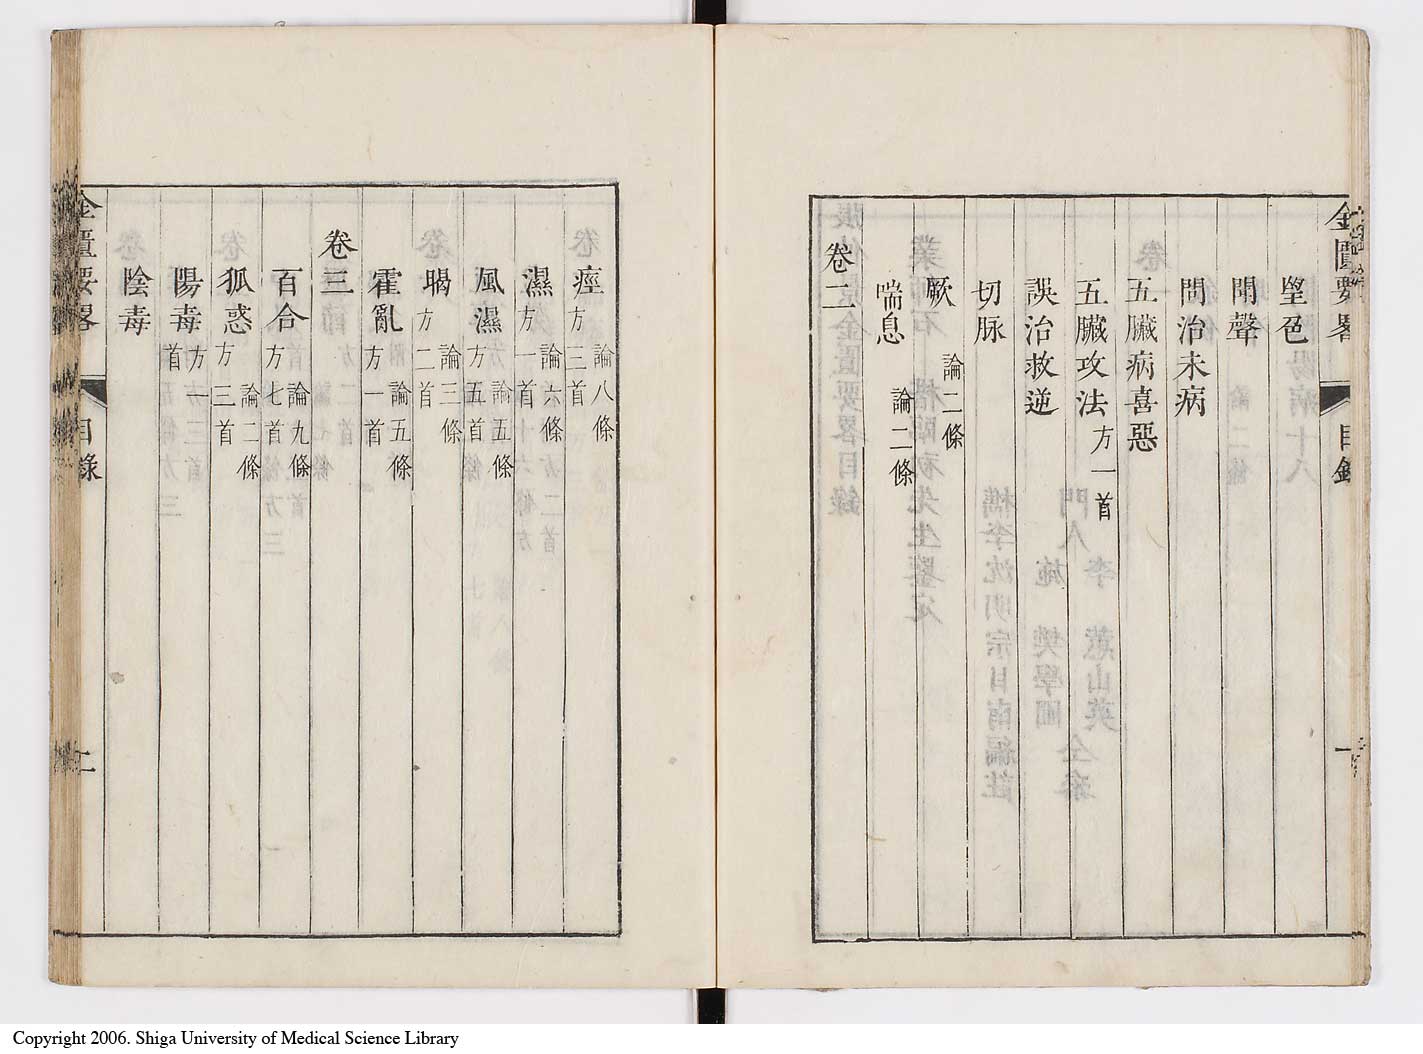 金匱要畧 目錄 一
朢色
聞聲
問治未病
五臟病喜惡
五臟攻法方一首
誤治救逆
切脉
厥 論二條
喘息 論二條
卷二
痙 論八條 方三首
濕 論六條 方一首
風濕 論五條 方五首
暍 論三條 方二首
霍亂 論五條 方一首
卷三
百合 論九條 方七首
狐惑 論二條 方三首
陽毒 方一首
陰毒
金匱要畧 目錄 二
Copyright 2006. Shiga University of Medical Science Library